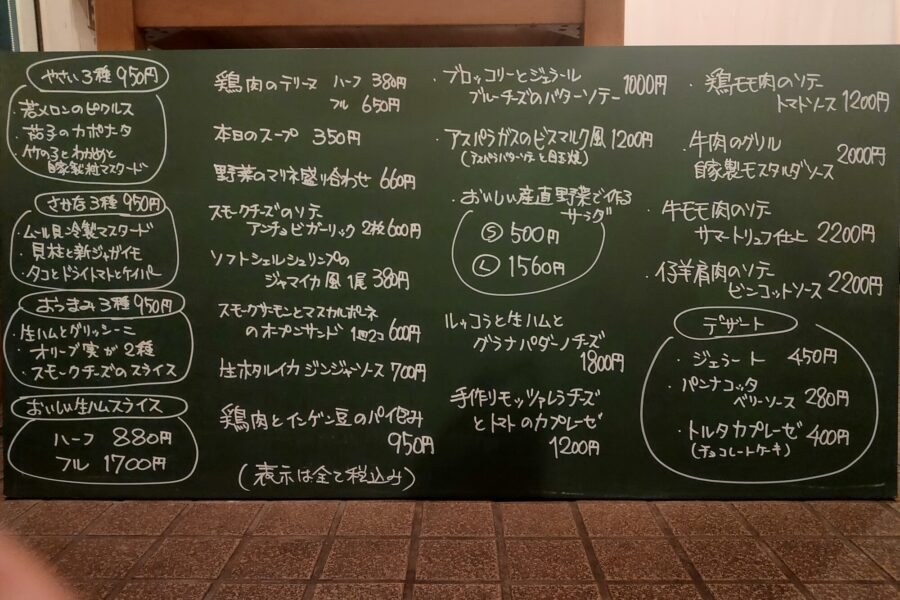 やさい3種 950円
・若メロンのピクルス
・茄子のカポナータ
・竹の子とわかめと
自家製粒マスタード
さかな3種 950円
・ムール貝冷製マスタード
・貝柱と新ジャガイモ
・タコとドライトマトとケイパー
おつまみ3種 950円
・生ハムとグリッシーニ
・オリーブ実が2種
・スモークチーズのスライス
おいしい生ハムスライス
ハーフ 880円
フル 1700円
鶏肉のテリーヌ ハーフ 380円
フル 650円
本日のスープ 350円
野菜のマリネ盛り合わせ 660円
スモークチーズのソテー
アンチョビガーリック 2枚600円
ソフトシェルシュリンプの
ジャマイカ風 1尾 380円
スモークサーモンとマスカルポーネ
のオープンサンド 1皿2コ 600円
生ホタルイカ ジンジャーソース 700円
鶏肉とインゲン豆のパイ包み
950円
(表示は全て税込み)
・ブロッコリーとジェラール
ブルーチーズのバターソテー 1000円
・アスパラガスのビスマルク風 1200円
(アスパラバターソテーと目玉焼)
・おいしい産直野菜で作る
サラダ
Ⓢ 500円
Ⓛ 1560円
ルッコラと生ハムと
グラナパダーノチーズ
1800円
手作りモッツァレラチーズ
とトマトのカプレーゼ
1200円
・鶏モモ肉のソテー
トマトソース 1200円
・牛肉のグリル
自家製モスタルダソース 2000円
・牛モモ肉のソテー
サマートリュフ仕上 2200円
・仔羊肩肉のソテー
ビンコットソース 2200円
デザート
・ジェラート 450円
・パンナコッタ
ベリーソース 280円
・トルタカプレーゼ 400円
(チョコレートケーキ)